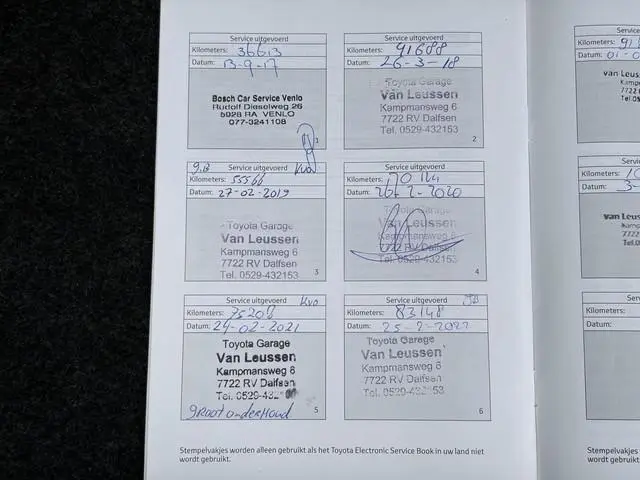 Service uitgevoerd
Kilometers: 36613
Datum: 13-9-17
Bosch Car Service Venlo
Rudolf Dieselweg 26
5928 RA VENLO
077-3241108
1
Service uitgevoerd
Kilometers: 91688
Datum: 26-3-18
Toyota Garage
Van Leussen
Kampmansweg 6
7722 RV Dalfsen
Tel. 0529-432153
2
Service uitgevoerd
Kilometers:
Datum: 27-02-2019
Toyota Garage
Van Leussen
Kampmansweg 6
7722 RV Dalfsen
Tel. 0529-432153
3
Service uitgevoerd
Kilometers:
Datum: 26-2-2020
Toyota Garage
Van Leussen
Kampmansweg 6
7722 RV Dalfsen
Tel. 0529-432153
4
Service uitgevoerd Kvo
Kilometers: 75208
Datum: 24-02-2021
Toyota Garage
Van Leussen
Kampmansweg 6
7722 RV Dalfsen
Tel. 0529-432
groot onderhoud
5
Service uitgevoerd
Kilometers: 83148
Datum: 25-2-2022
Toyota Garage
Van Leussen
Kampmansweg 6
7722 RV Dalfsen
Tel. 0529-432153
6
Stempelvakjes worden alleen gebruikt als het Toyota Electronic Service Book in uw land niet
wordt gebruikt.
Kilometers:
Datum:
Van Leus
Kilometers:
Datum:
Van Leus
Kilometers:
Datum:
Stempelvakjes
wordt gebruikt.